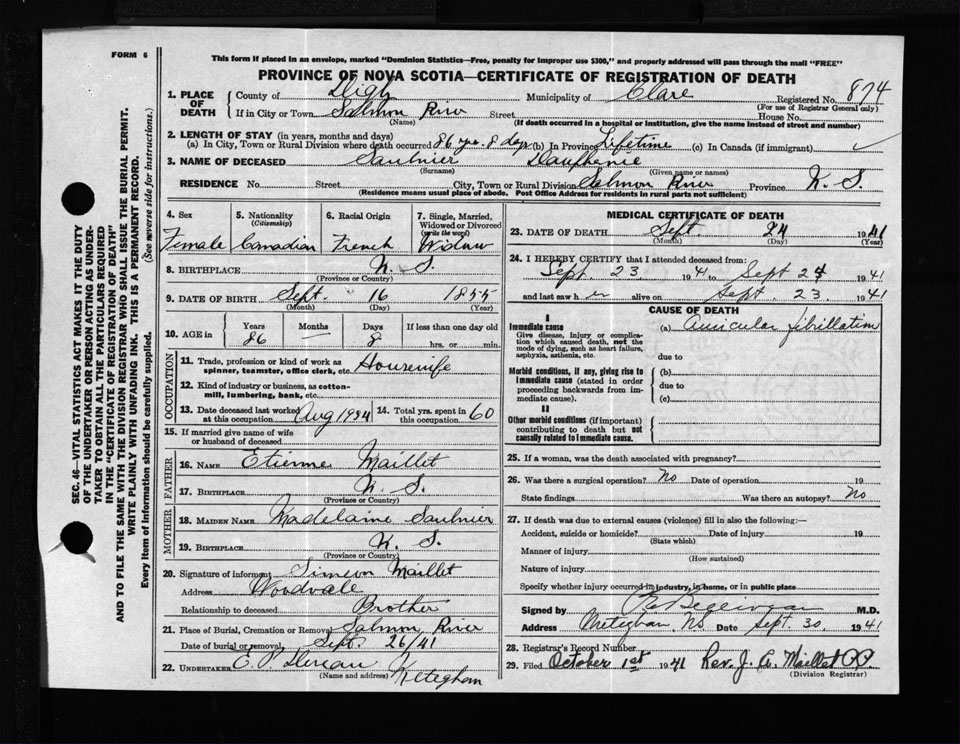 FORM 6
This form if placed in an envelope, marked "Dominion Statistics—Free, penalty for improper use $300," and properly addressed will pass through the mail "FREE"
PROVINCE OF NOVA SCOTIA—CERTIFICATE OF REGISTRATION OF DEATH
SEC. 46—VITAL STATISTICS ACT MAKES IT THE DUTY
OF THE UNDERTAKER OR PERSON ACTING AS UNDER-
TAKER TO OBTAIN ALL THE PARTICULARS REQUIRED
IN THE "CERTIFICATE OF REGISTRATION OF DEATH"
AND TO FILE THE SAME WITH THE DIVISION REGISTRAR WHO SHALL ISSUE THE BURIAL PERMIT.
WRITE PLAINLY WITH UNFADING INK. THIS IS A PERMANENT RECORD.
Every item of Information should be carefully supplied. (See reverse side for instructions.)
1. PLACE OF DEATH
County of Digby Municipality of Clare Registered No. 874
(For use of Registrar General only)
If in City or Town Salmon River Street House No.
(Name) (If death occurred in a hospital or institution, give the name instead of street and number)
2. LENGTH OF STAY (in years, months and days)
(a) In City, Town or Rural Division where death occurred 86 yrs. 8 days (b) In Province Lifetime (c) In Canada (if immigrant)
3. NAME OF DECEASED Saulnier Dauphanie
(Surname) (Given name or names)
RESIDENCE No. Street City, Town or Rural Division Salmon River Province N. S.
(Residence means usual place of abode. Post Office Address for residents in rural parts not sufficient)
4. Sex
Female
5. Nationality
(Citizenship)
Canadian
6. Racial Origin
French
7. Single, Married, Widowed or Divorced
(write the word)
Widow
8. BIRTHPLACE N. S.
(Province or Country)
9. DATE OF BIRTH Sept. 16 1855
(Month) (Day) (Year)
10. AGE in Years Months Days If less than one day old
86 — 8 hrs. or min.
OCCUPATION
11. Trade, profession or kind of work as
spinner, teamster, office clerk, etc. Housewife
12. Kind of industry or business, as cotton-
mill, lumbering, bank, etc.
13. Date deceased last worked
at this occupation Aug 1934
14. Total yrs. spent in
this occupation 60
15. If married give name of wife
or husband of deceased
FATHER
16. NAME Etienne Maillet
17. BIRTHPLACE N. S.
(Province or Country)
MOTHER
18. MAIDEN NAME Madelaine Saulnier
19. BIRTHPLACE N. S.
(Province or Country)
20. Signature of informant Simeon Maillet
Address Woodvale
Relationship to deceased Brother
21. Place of Burial, Cremation or Removal Salmon River
Date of burial or removal Sept. 26/41
22. UNDERTAKER E. P. Meteghan
(Name and address)
MEDICAL CERTIFICATE OF DEATH
23. DATE OF DEATH Sept. 24 1941
(Month) (Day) (Year)
24. I HEREBY CERTIFY that I attended deceased from:
Sept. 23 1941 to Sept 24 1941
and last saw h er alive on Sept. 23 1941
CAUSE OF DEATH
I
Immediate cause
Give disease, injury or complica-
tion which caused death, not the
mode of dying, such as heart failure,
asphyxia, asthenia, etc.
(a) Auricular fibrillation
due to
Morbid conditions, if any, giving rise to
immediate cause (stated in order
proceeding backwards from im-
mediate cause).
(b)
due to
(c)
II
Other morbid conditions (if important)
contributing to death but not
causally related to immediate cause.
25. If a woman, was the death associated with pregnancy?
26. Was there a surgical operation? No Date of operation 19
State findings Was there an autopsy? No
27. If death was due to external causes (violence) fill in also the following:—
Accident, suicide or homicide? Date of injury 19
(State which)
Manner of injury
(How sustained)
Nature of injury
Specify whether injury occurred in industry, in home, or in public place
Signed by M.D.
Address Meteghan, NS Date Sept. 30 1941
28. Registrar's Record No.
29. Filed October 1st 1941 Rev. J. A. Maillet P.P.
(Division Registrar)